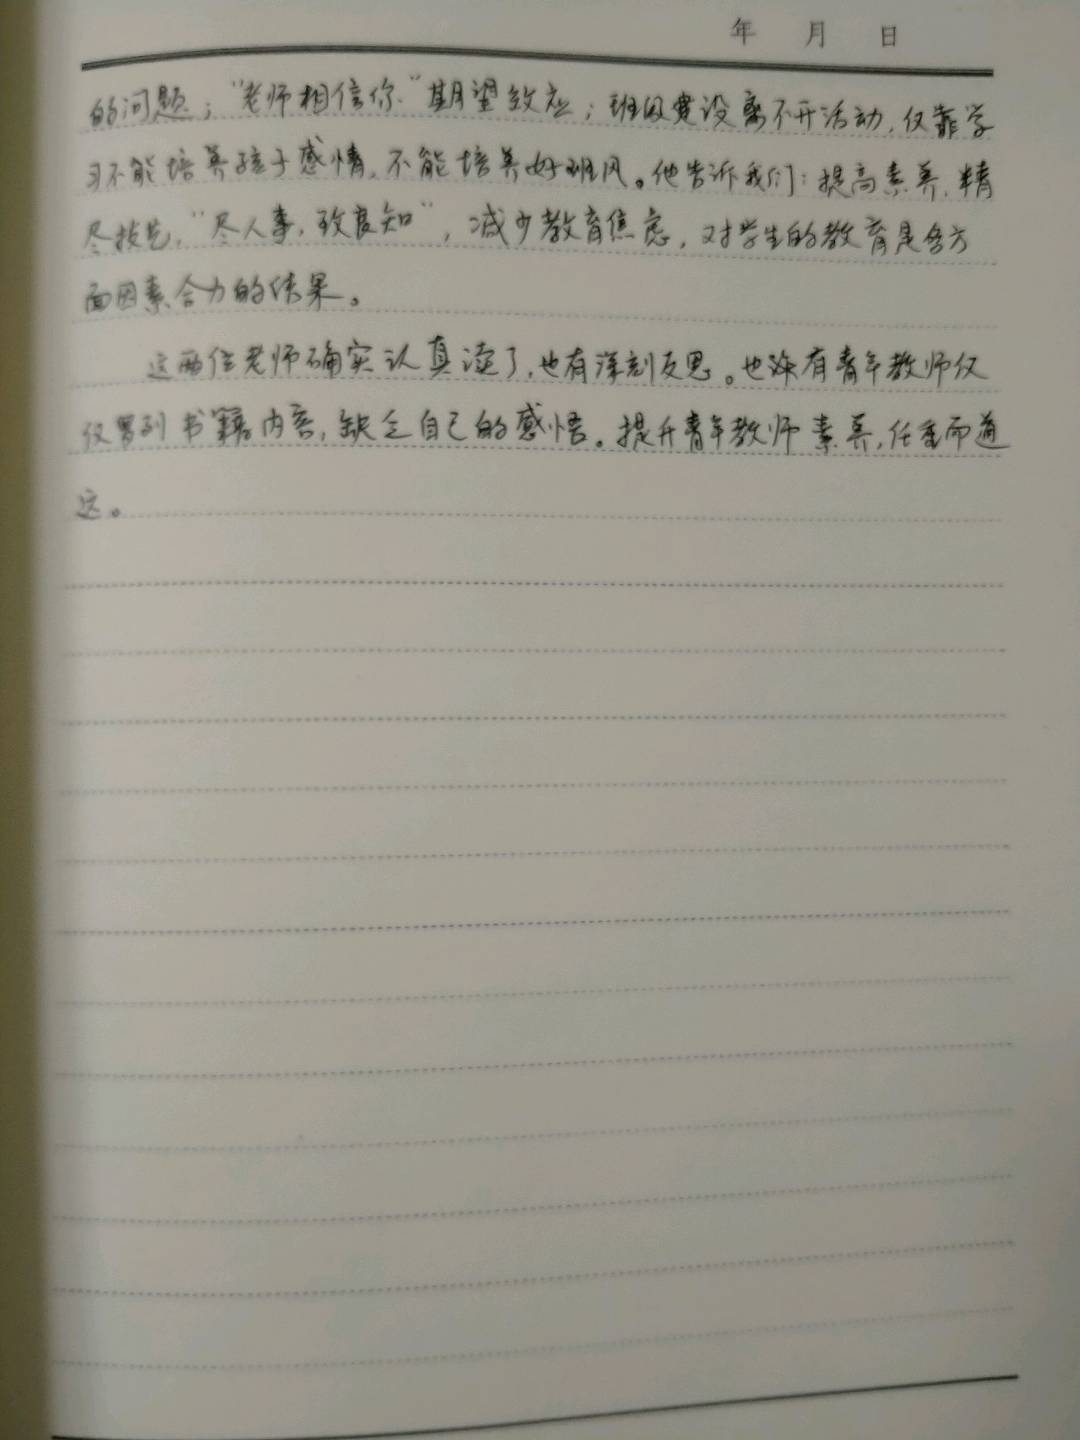 年 月 日
的问题；“老师相信你”期望效应；班级建设离不开活动，仅靠学
习不能培养孩子感情，不能培养好班风。他告诉我们：提高素养，精
尽技艺，“尽人事，致良知”，减少教育焦虑，对学生的教育是各方
面因素合力的结果。
这两位老师确实认真读了，也有深刻反思。也许有青年教师仅
仅罗列书籍内容，缺乏自己的感悟。提升青年教师素养，任重而道
远。